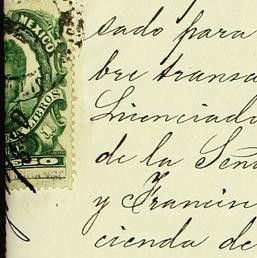 MEXICO
LIBROS
sado para
bre transa
Licenciado
de la Señ
y Francin
cienda de